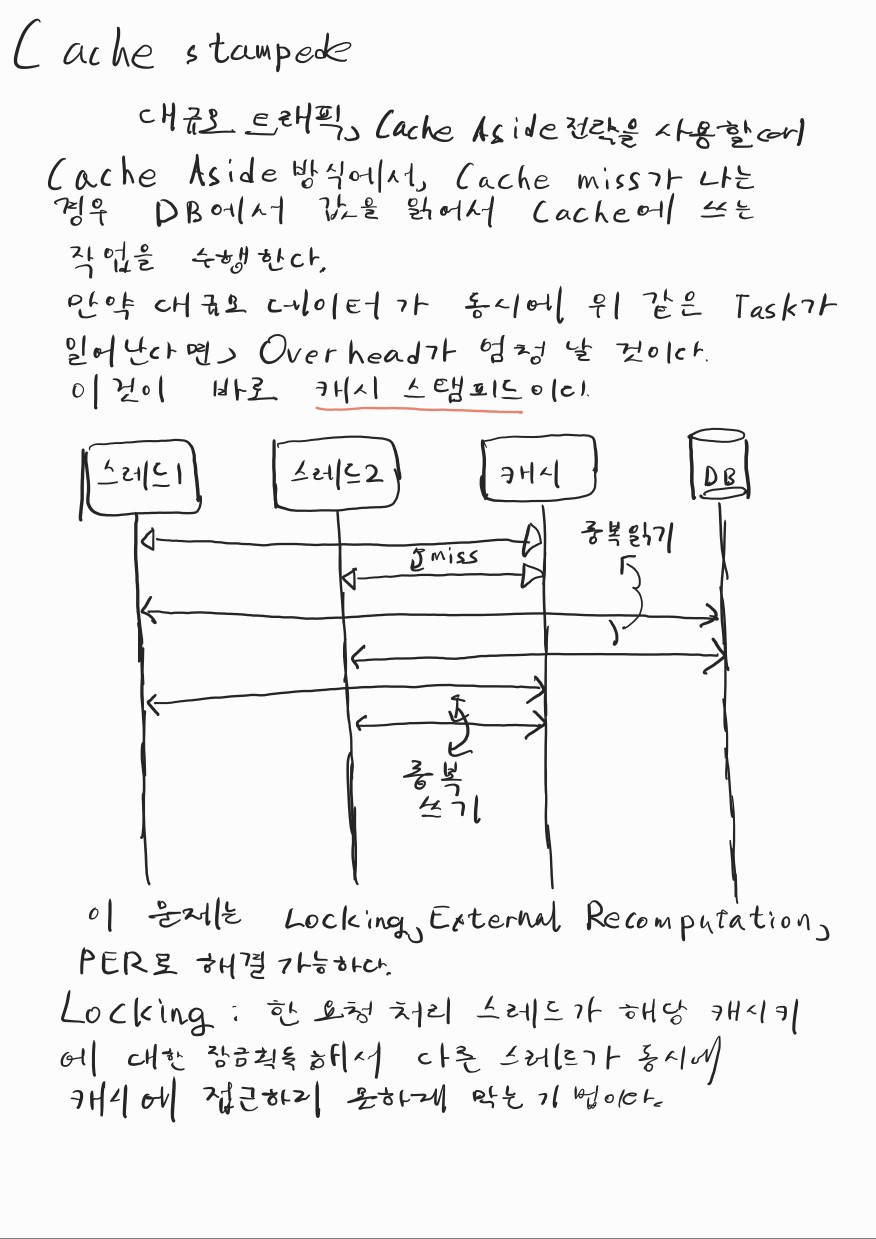 Cache stampede
대규모 트래픽, Cache Aside 전략을 사용할 때
Cache Aside 방식에서, Cache miss가 나는
경우 DB에서 값을 읽어서 Cache에 쓰는
작업을 수행한다.
만약 대규모 데이터가 동시에 위 같은 Task가
일어난다면, Overhead가 엄청 날 것이다.
이것이 바로 캐시 스탬피드이다.
스레드1 스레드2 캐시 DB
중복읽기
miss
중복
쓰기
이 문제는 Locking, External Recomputation,
PER로 해결 가능하다.
Locking : 한 요청 처리 스레드가 해당 캐시키
에 대한 잠금획득해서 다른 스레드가 동시에
캐시에 접근하지 못하게 막는 기법이다.